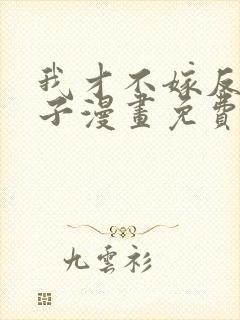 我才不嫁反
子漫畫免費
九雲衫